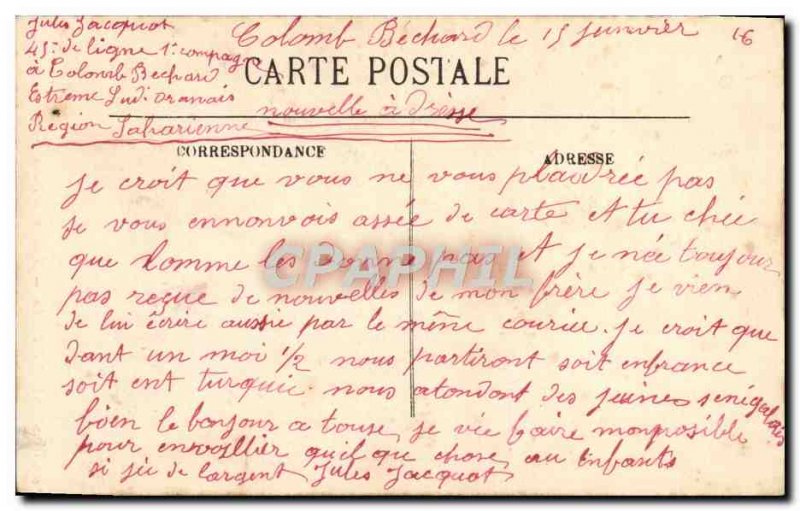 Jules Jacquot
45e de ligne 1e compagnie
à Colomb Bechard
Estreme Sud. oranais
Région Saharienne
Colomb Béchard le 15 janvier 16
CARTE POSTALE
nouvelle adresse
CORRESPONDANCE
ADRESSE
je croit que vous ne vous plaudrée pas
je vous ennonvois assée de carte et tu chée
que lomme les donne pas et je née toujour
pas reçue de nouvelles de mon frère je vien
de lui écrire aussie par le même couriée. je croit que
dant un moi 1/2 nous partiront soit enfrance
soit ent turquie nous atondont des jeunes sénégalais
bôen le bonjour a touse, je vée faire monposible
pour envoillier quel que chose au enfants
si jée de largent Jules Jacquot
CPAPHIL